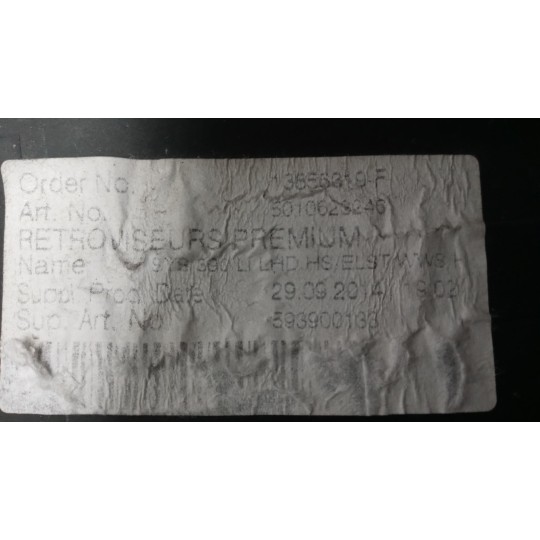 Order No.
Art. No. - 5010623246
RETROVISEURS PREMIUM
Name LI LHD HS/ELST
Suppl. Prod. Date 29.09.2014
Sup. Art. No 593900133